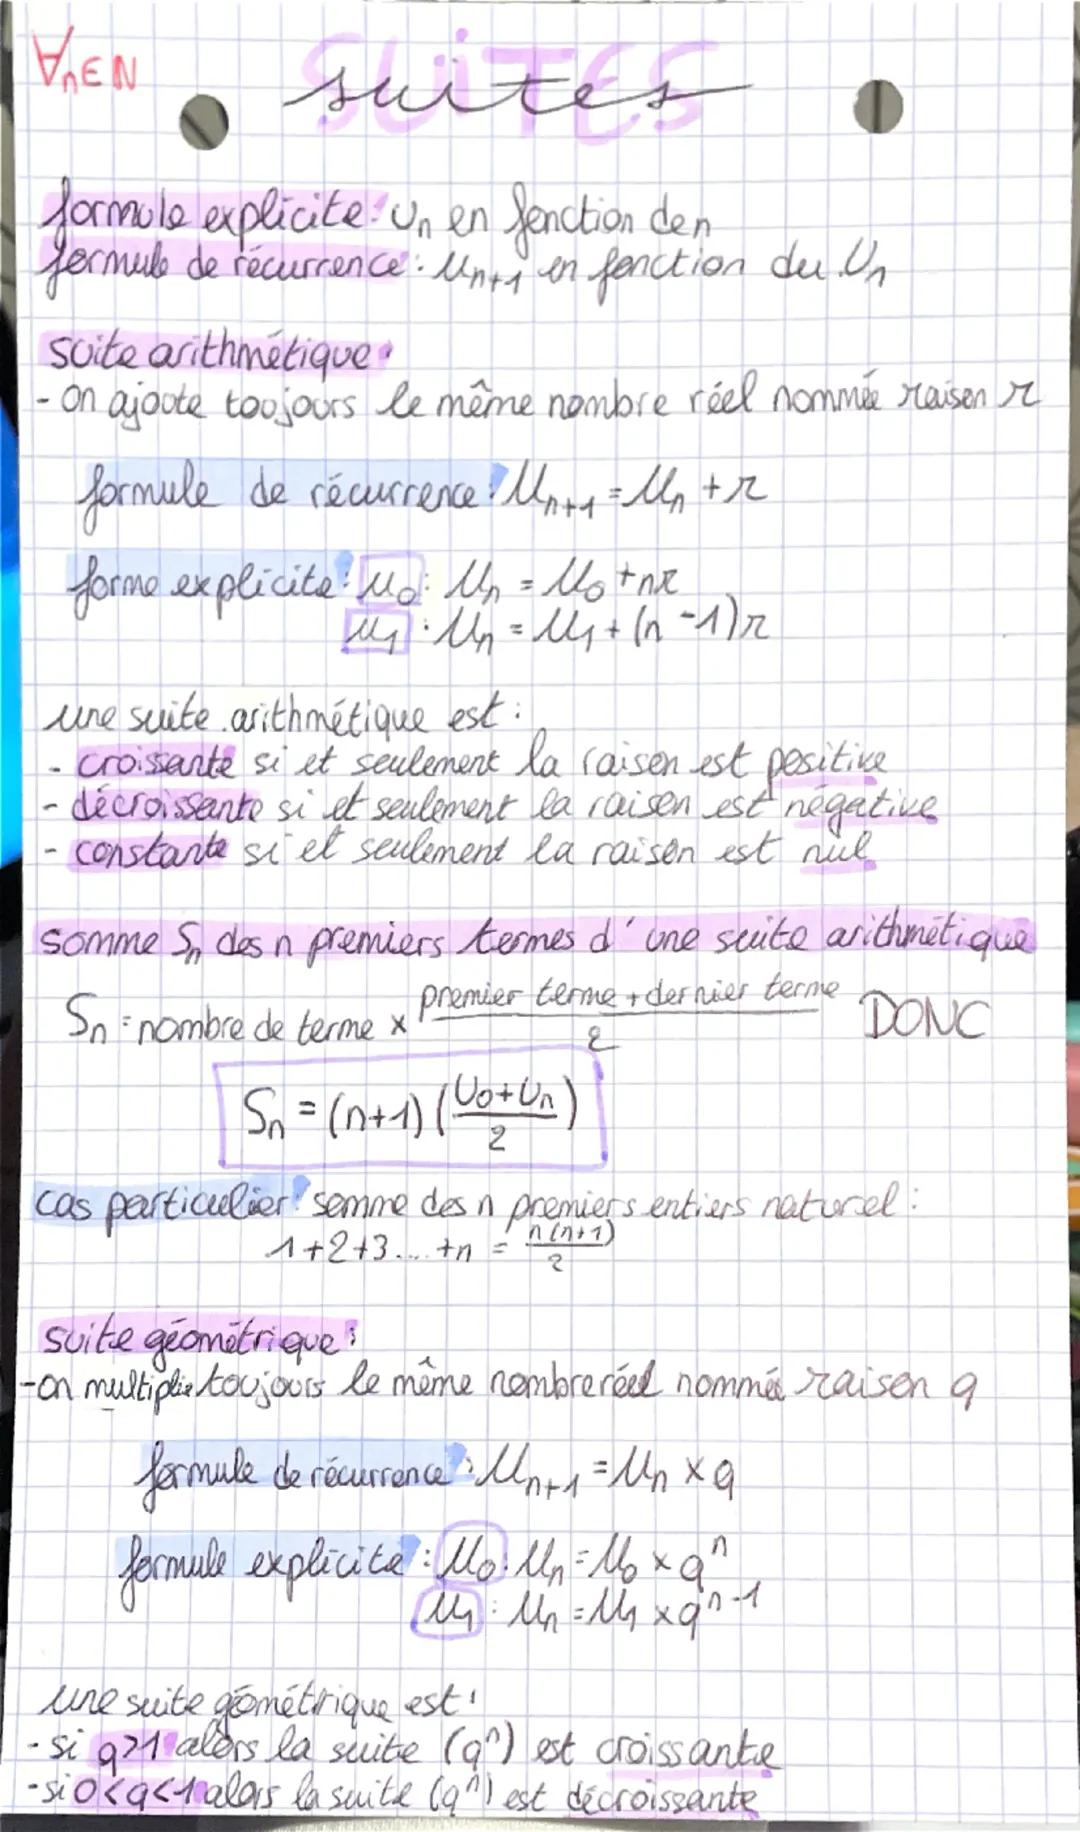 ∀n∈N
suites
formule explicite: Un en fonction de n
formule de récurrence: Un+1 en fonction du Un
suite arithmétique:
- on ajoute toujours le même nombre réel nommée raison r
formule de récurrence: Un+1 = Un + r
forme explicite: U0: Un = U0 + nr
U1: Un = U1 + (n-1)r
une suite arithmétique est:
- croissante si et seulement la raison est positive
- décroissante si et seulement la raison est négative
- constante si et seulement la raison est nul
somme Sn des n premiers termes d'une suite arithmétique
Sn = nombre de terme × (premier terme + dernier terme)/2 DONC
Sn = (n+1) ((U0+Un)/2)
cas particulier: somme des n premiers entiers naturel:
1+2+3....+n = n(n+1)/2
suite géométrique:
- on multiplie toujours le même nombre réel nommée raison q
formule de récurrence: Un+1 = Un × q
formule explicite: U0: Un = U0 × qⁿ
U1: Un = U1 × qⁿ⁻¹
une suite géométrique est:
- si q>1 alors la suite (qⁿ) est croissante
- si 0<q<1 alors la suite (qⁿ) est décroissante